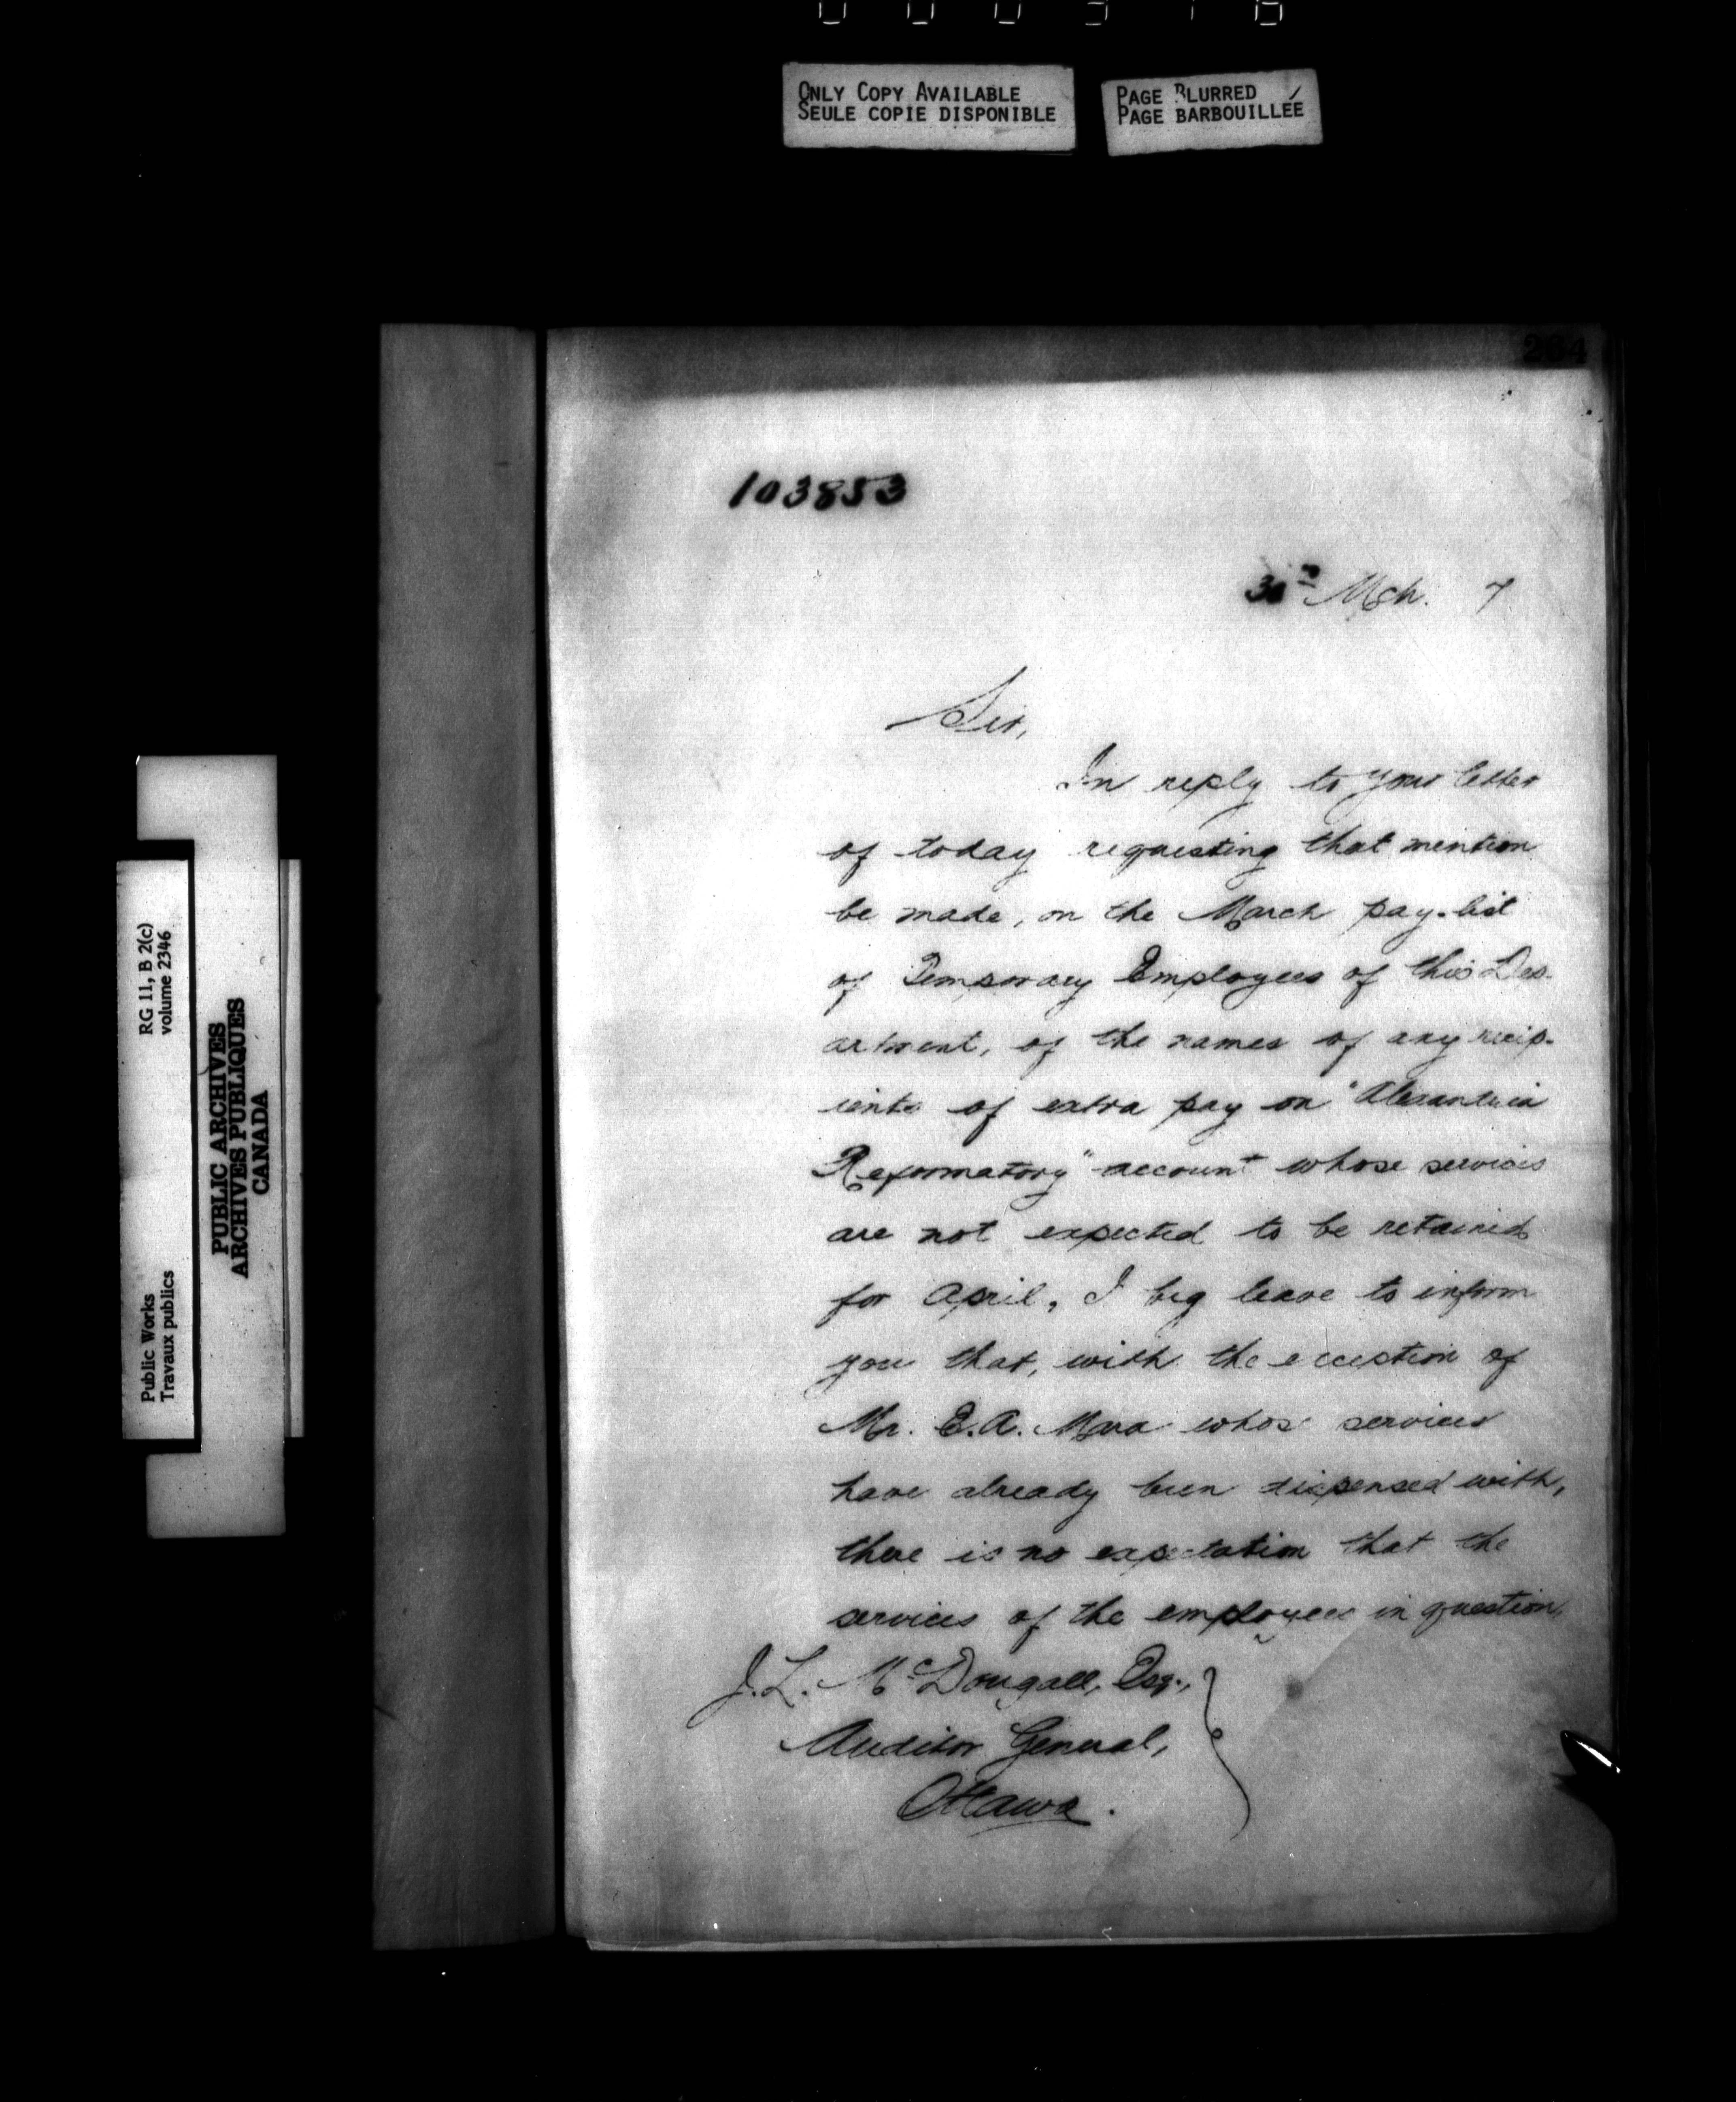 ONLY COPY AVAILABLE
SEULE COPIE DISPONIBLE
PAGE BLURRED
PAGE BARBOUILLÉE
264
103853
Mch. 7
Sir,
In reply to your letter
of today requesting that mention
be made, on the March pay-list
of Temporary Employees of this Dep-
artment, of the names of any recip-
ients of extra pay on "Alexandria
Reformatory" account whose services
are not expected to be retained
for April, I beg leave to inform
you that, with the exception of
Mr. E.A. Mara whose services
have already been dispensed with,
there is no expectation that the
services of the employees in question,
J.L. McDougall, Esq.,
Auditor General,
Ottawa.
RG 11, B 2(c)
volume 2346
PUBLIC ARCHIVES
ARCHIVES PUBLIQUES
CANADA
Public Works
Travaux publics